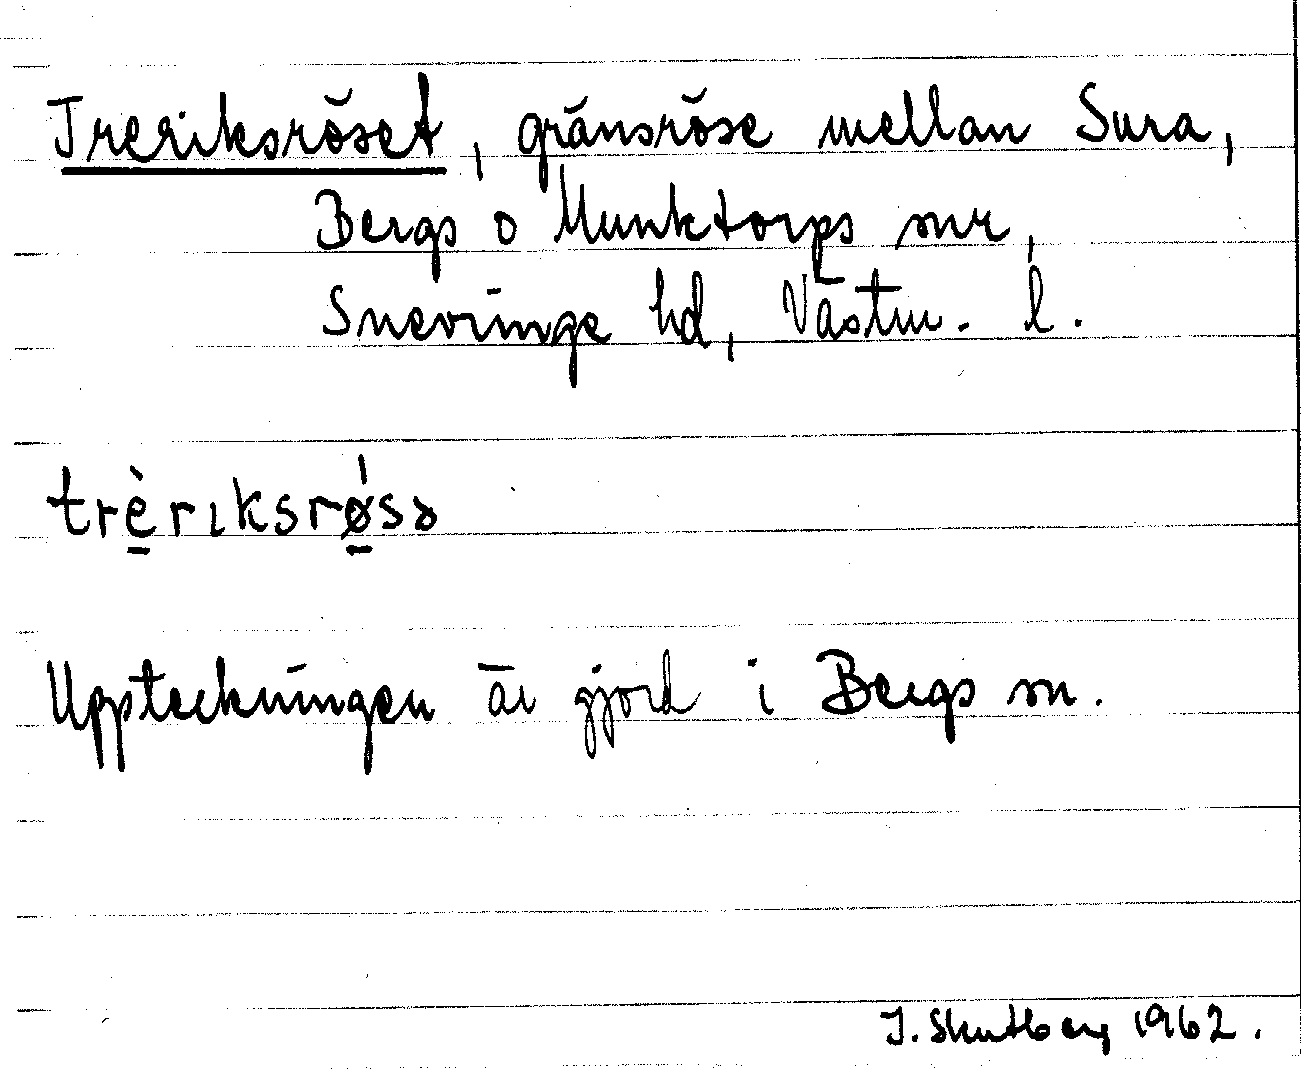 Treriksröset, gränsröse mellan Sura,
Bergs o Munktorps snr,
Snevringe hd, Västm. l.
trè̱rıksrǿ̱sə
Uppteckningen är gjord i Bergs sn.
J. Skutberg 1962.